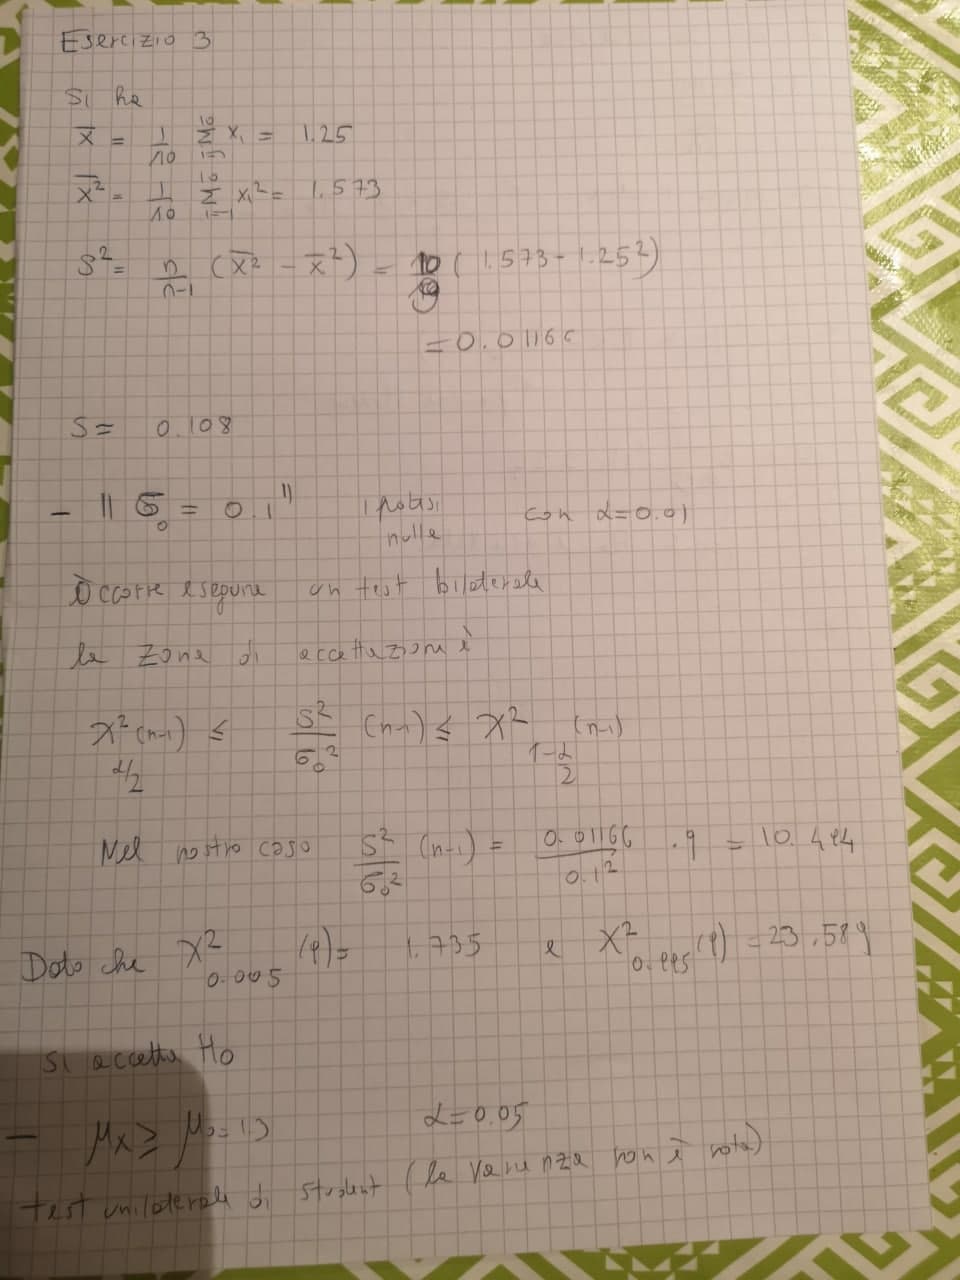 Esercizio 3
Si ha
x̄ = 1/10 Σ_{i=1}^{10} x_i = 1.25
x̄² = 1/10 Σ_{i=1}^{10} x_i² = 1.573
S² = n/n-1 (x̄² - x̄²) = 10/9 (1.573 - 1.25²)
= 0.01166
S = 0.108
- "σ₀ = 0.1" ipotesi nulla con α=0.01
Occorre eseguire un test bilaterale
la zona di accettazione è
χ²_{α/2} (n-1) ≤ S²/σ₀² (n-1) ≤ χ²_{1-α/2} (n-1)
Nel nostro caso S²/σ₀² (n-1) = 0.01166/0.1² · 9 = 10.494
Dato che χ²_{0.005} (9) = 1.735 e χ²_{0.995} (9) = 23.589
Si accetta H₀
- μx ≥ μ₀ = α=0.05
test unilaterale di student (la varianza non è nota)